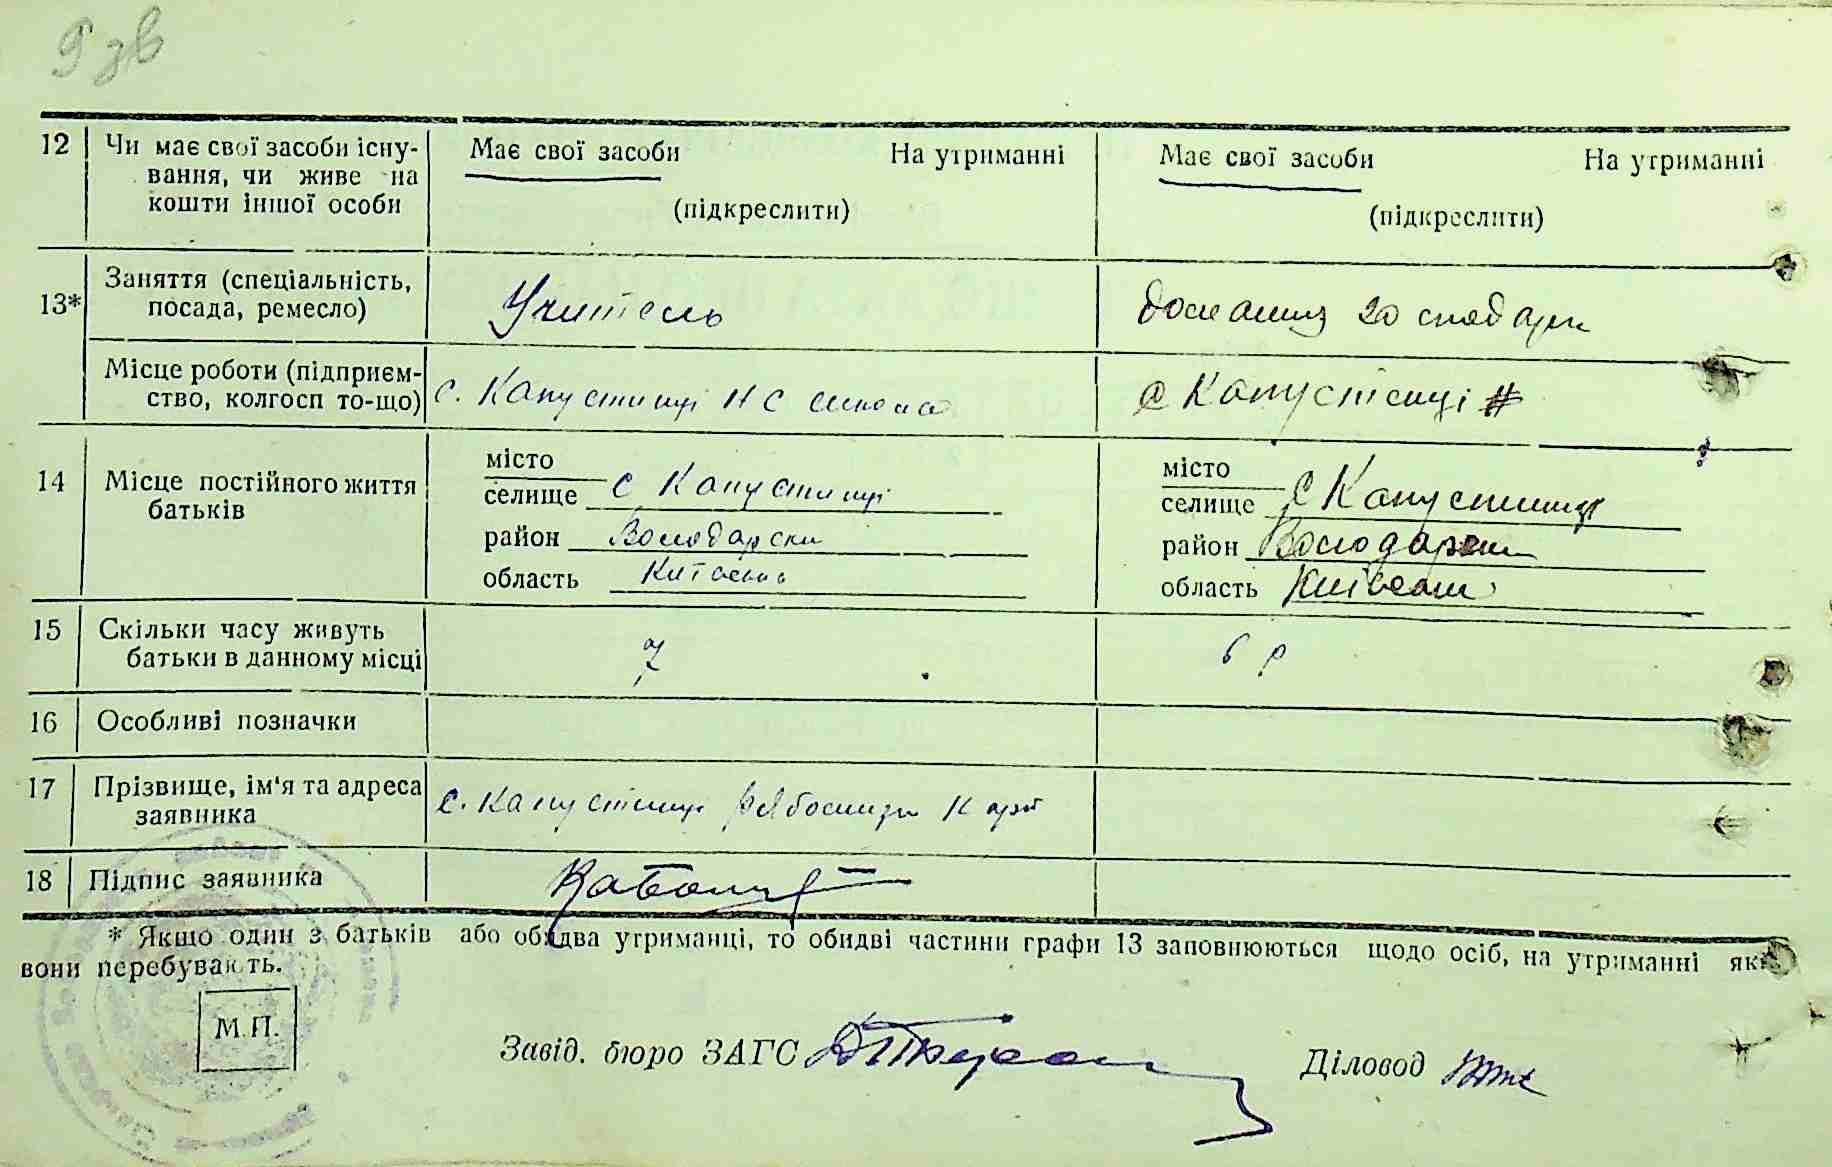 9 зв
12 Чи має свої засоби існу-
вання, чи живе на
кошти іншої особи
Має свої засоби На утриманні
(підкреслити)
Має свої засоби На утриманні
(підкреслити)
13* Заняття (спеціальність,
посада, ремесло)
Учитель
домашнз господарк
Місце роботи (підприєм-
ство, колгосп то-що)
с. Капустинці НС школа
с Капустінці
14 Місце постійного життя
батьків
місто
селище с Капустинці
район Володарски
область Київськ
місто
селище с Капустинці
район Володарськ
область Київськ
15 Скільки часу живуть
батьки в данному місці
7
6 р
16 Особливі позначки
17 Прізвище, ім'я та адреса
заявника
с. Капустінці
18 Підпис заявника
* Якщо один з батьків або обидва утриманці, то обидві частини графи 13 заповнюються щодо осіб, на утриманні яких
вони перебувають.
М.П.
Завід. бюро ЗАГС
Діловод